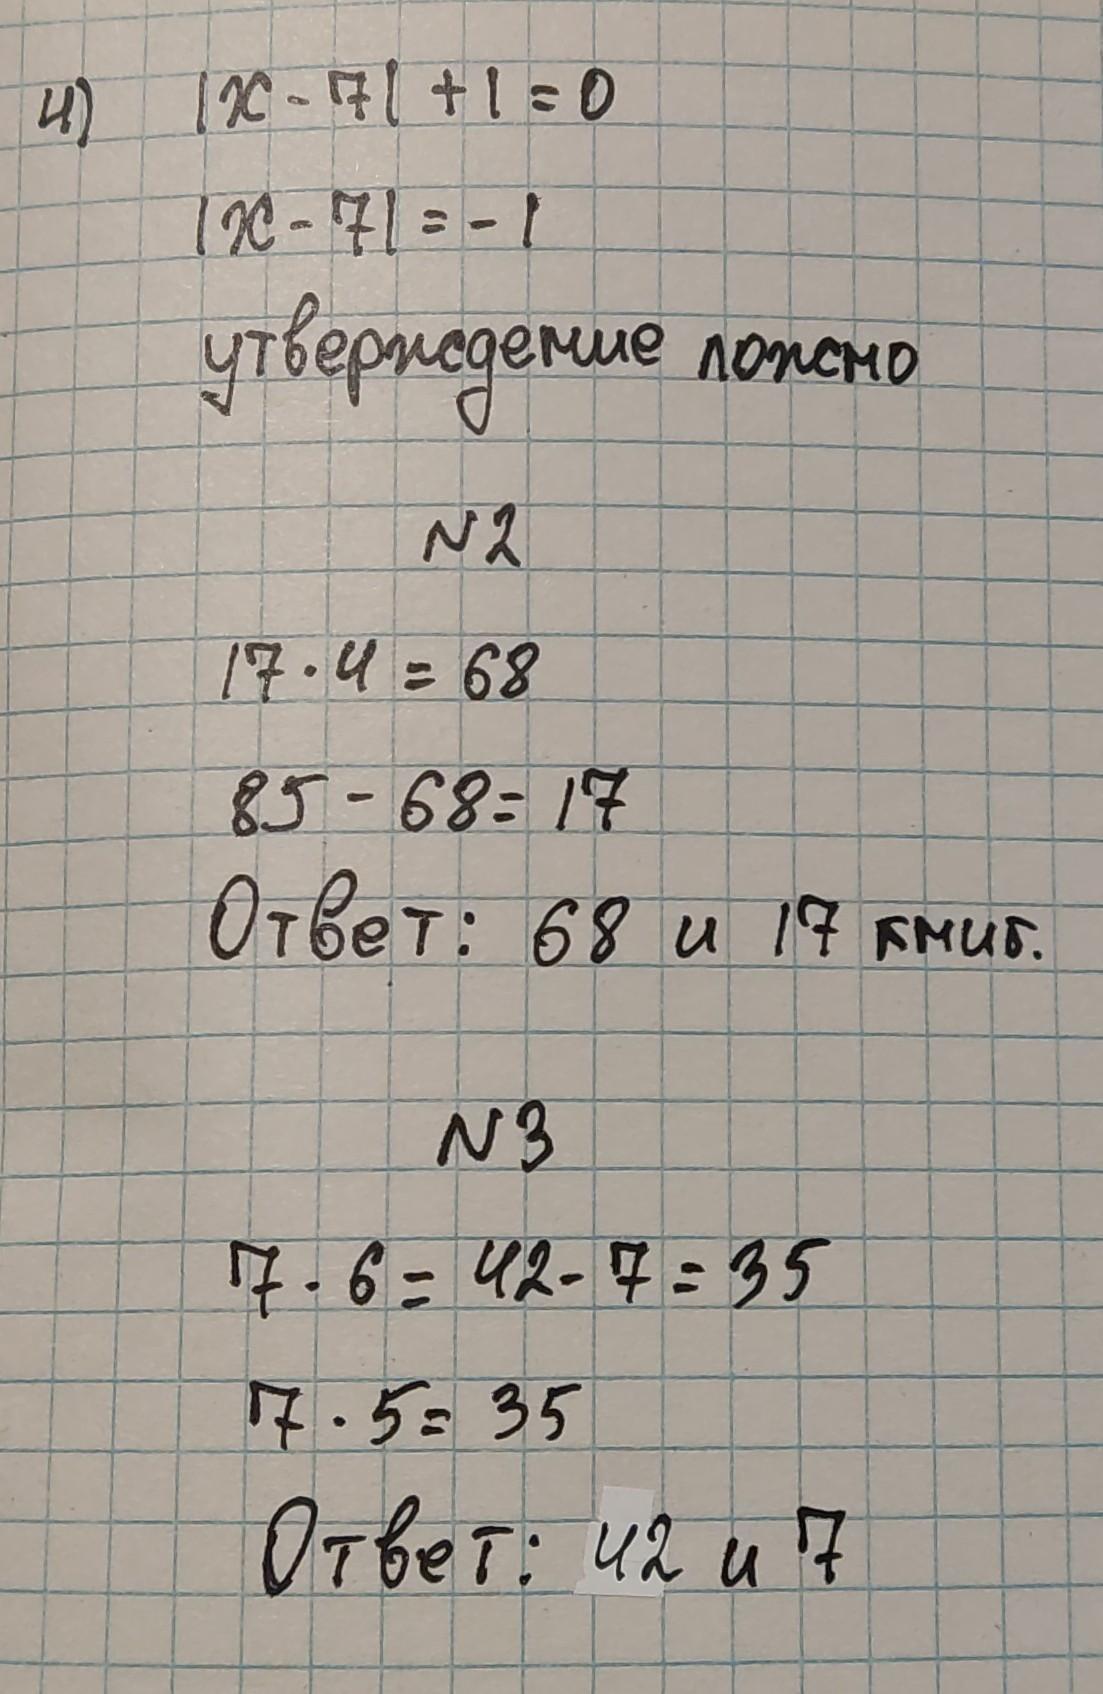 4) |x - 7| + 1 = 0
|x - 7| = - 1
утверждение ложно
N2
17 · 4 = 68
85 - 68 = 17
Ответ: 68 и 17 книг.
N3
7 · 6 = 42 - 7 = 35
7 · 5 = 35
Ответ: 42 и 7